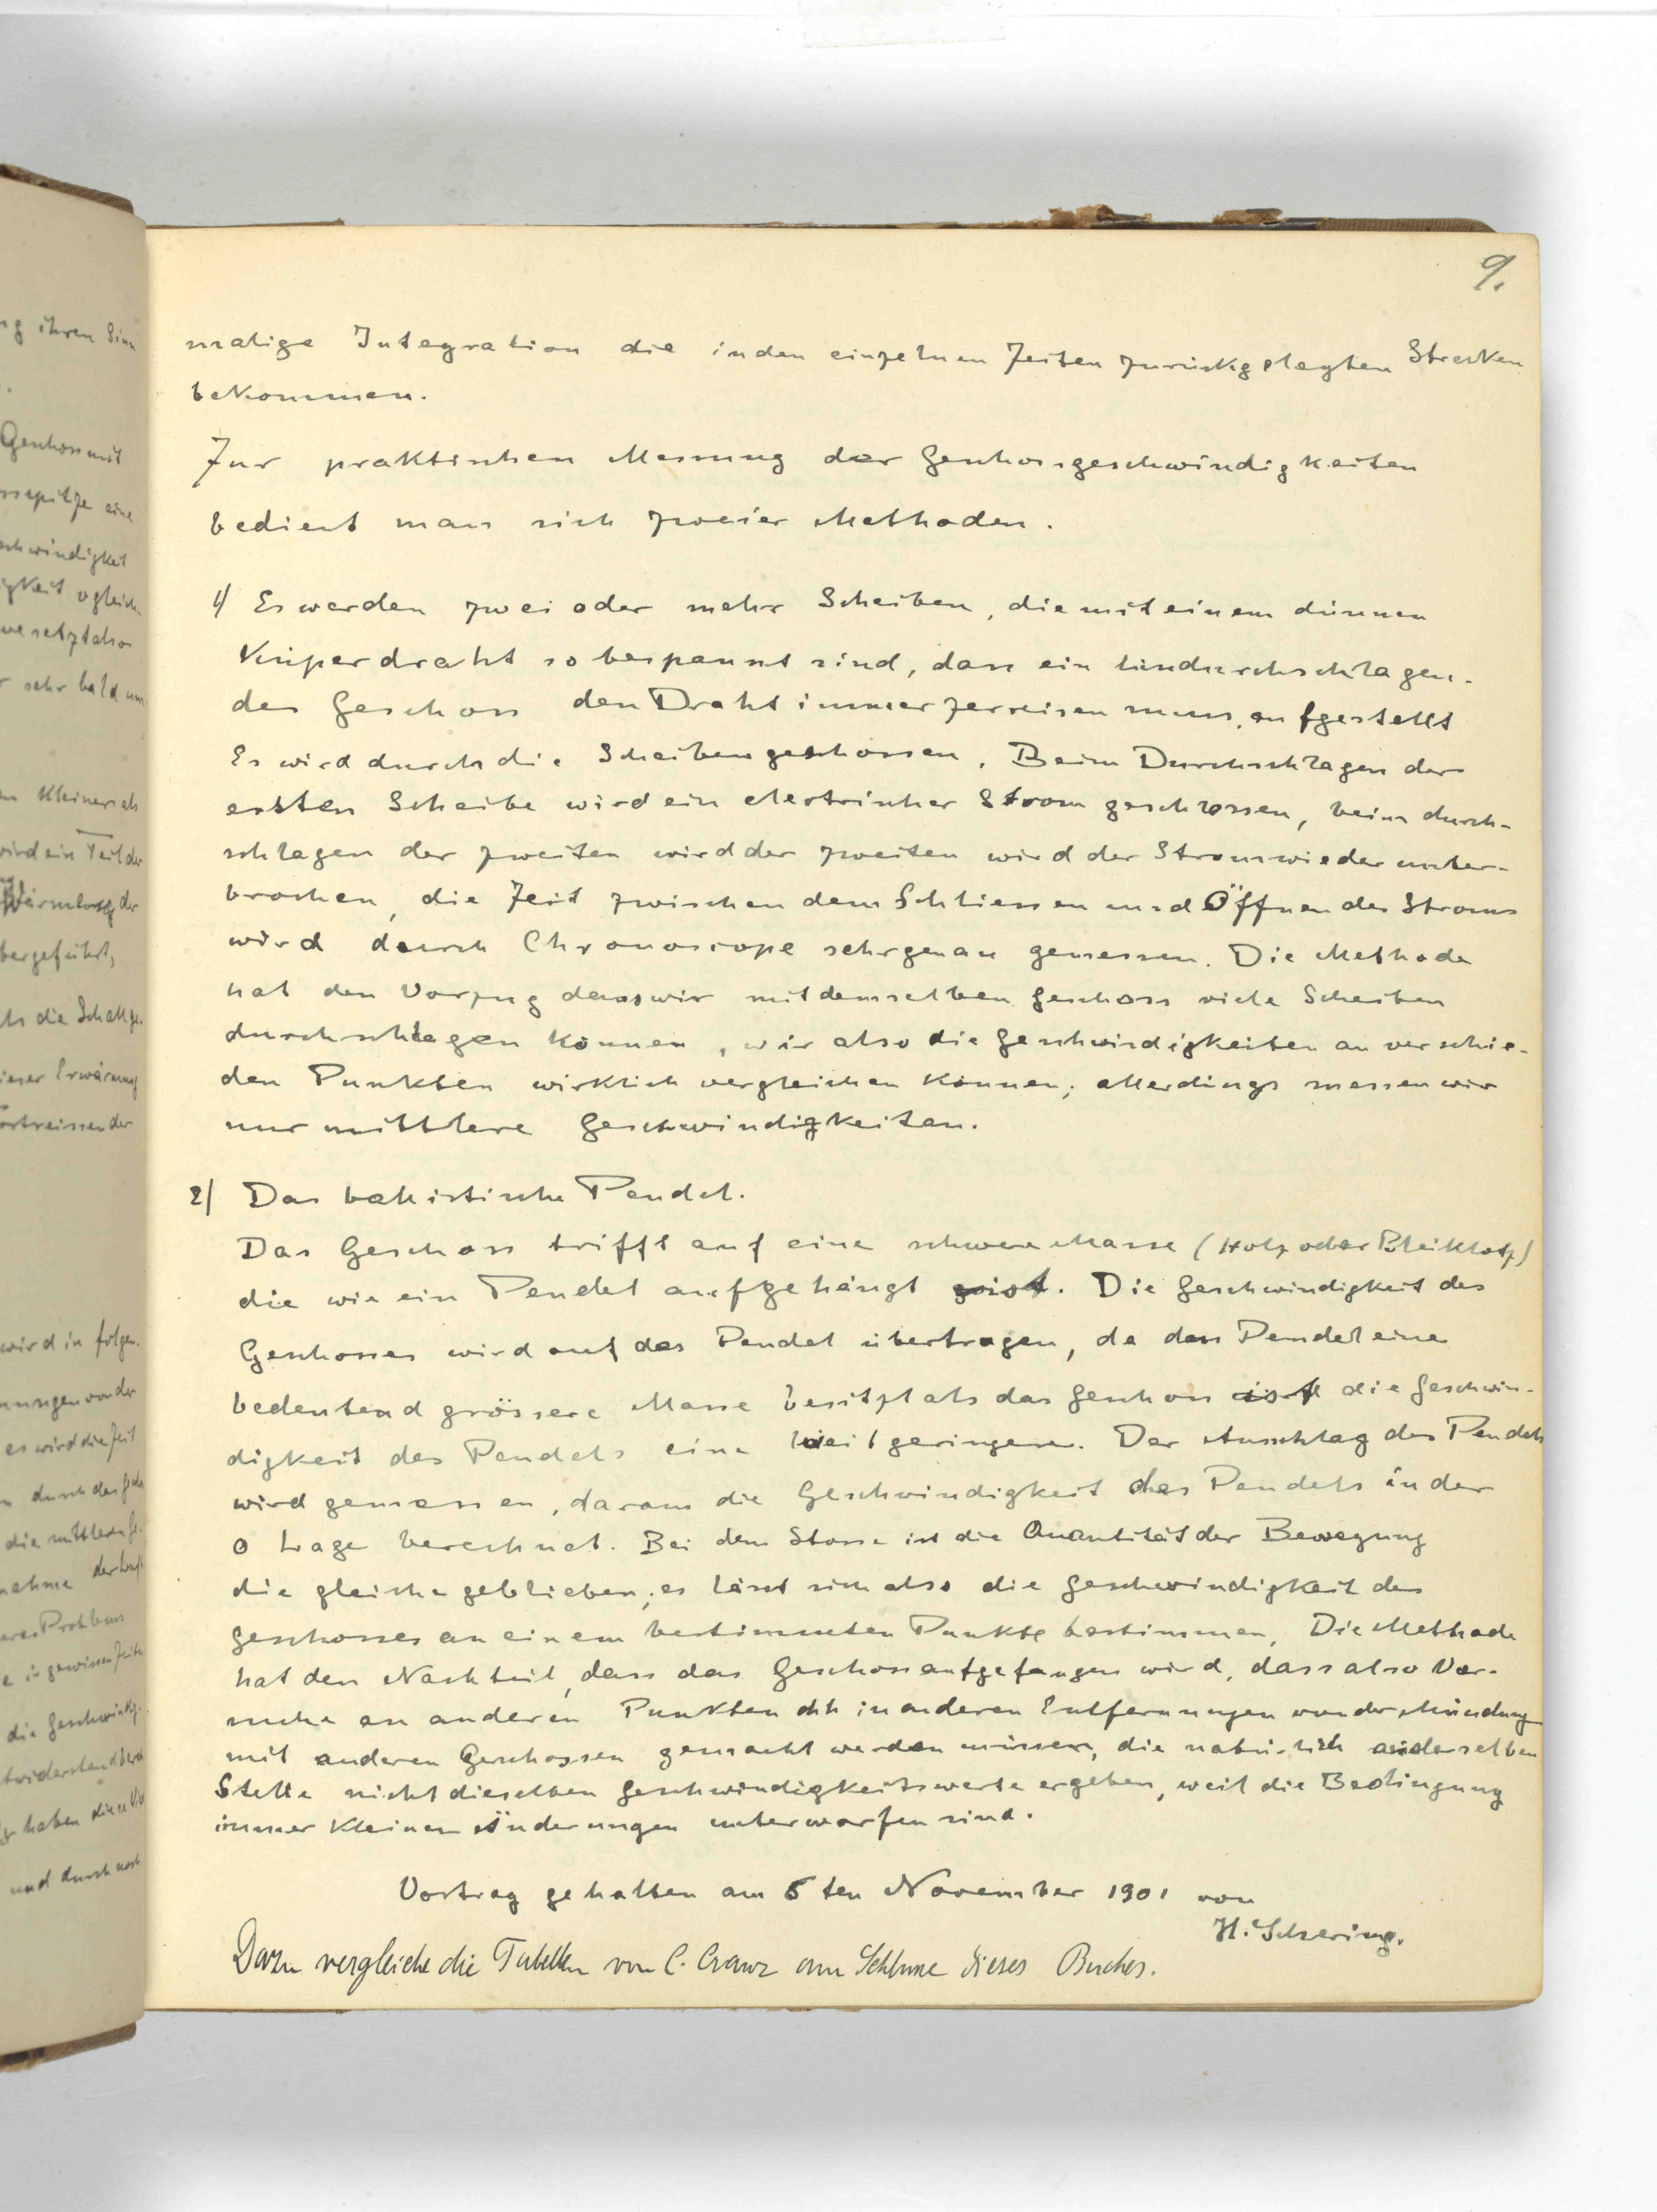 9.
malige Integration die in den einzelnen Zeiten zurückgelegten Strecken
bekommen.
Zur praktischen Messung der Geschossgeschwindigkeiten
bedient man sich zweier Methoden.
1) Es werden zwei oder mehr Scheiben, die mit einem dünnen
Kupferdraht so bespannt sind, dass ein hindurchschlagen-
des Geschoss den Draht immer zerreisen muss, aufgestellt
Es wird durch die Scheiben geschossen. Beim Durchschlagen der
ersten Scheibe wird ein electrischer Strom geschlossen, beim durch-
schlagen der zweiten wird der zweiten wird der Strom wieder unter-
brochen, die Zeit zwischen dem Schliessen und Öffnen des Stroms
wird durch Chronoscope sehr genau gemessen. Die Methode
hat den Vorzug dass wir mit demselben Geschoss viele Scheiben
durchschlagen können, wir also die Geschwindigkeiten an verschie-
den Punkten wirklich vergleichen können; allerdings messen wir
nur mittlere Geschwindigkeiten.
2) Das ballistische Pendel.
Das Geschoss trifft auf eine schwere Masse (Holz oder Bleiklotz)
die wie ein Pendel aufgehängt ist. Die Geschwindigkeit des
Geschosses wird auf das Pendel übertragen, da das Pendel eine
bedeutend grössere Masse besitzt als das Geschoss ist die Geschwin-
digkeit des Pendels eine weit geringere. Der Ausschlag des Pendels
wird gemessen, daraus die Geschwindigkeit des Pendels in der
0 Lage berechnet. Bei dem Stosse ist die Quantität der Bewegung
die gleiche geblieben; es lässt sich also die Geschwindigkeit des
Geschosses an einem bestimmten Punkte bestimmen. Die Methode
hat den Nachteil, dass das Geschoss aufgefangen wird, dass also Ver-
suche an anderen Punkten dh in anderen Entfernungen von der Mündung
mit anderen Geschossen gemacht werden müssen, die natürlich an derselben
Stelle nicht dieselben Geschwindigkeitswerte ergeben, weil die Bedingung
immer kleinen Änderungen unterworfen sind.
Vortrag gehalten am 5ten November 1901 von
H. Schering.
Dazu vergleiche die Tabellen von C. Cranz am Schlusse dieses Buches.